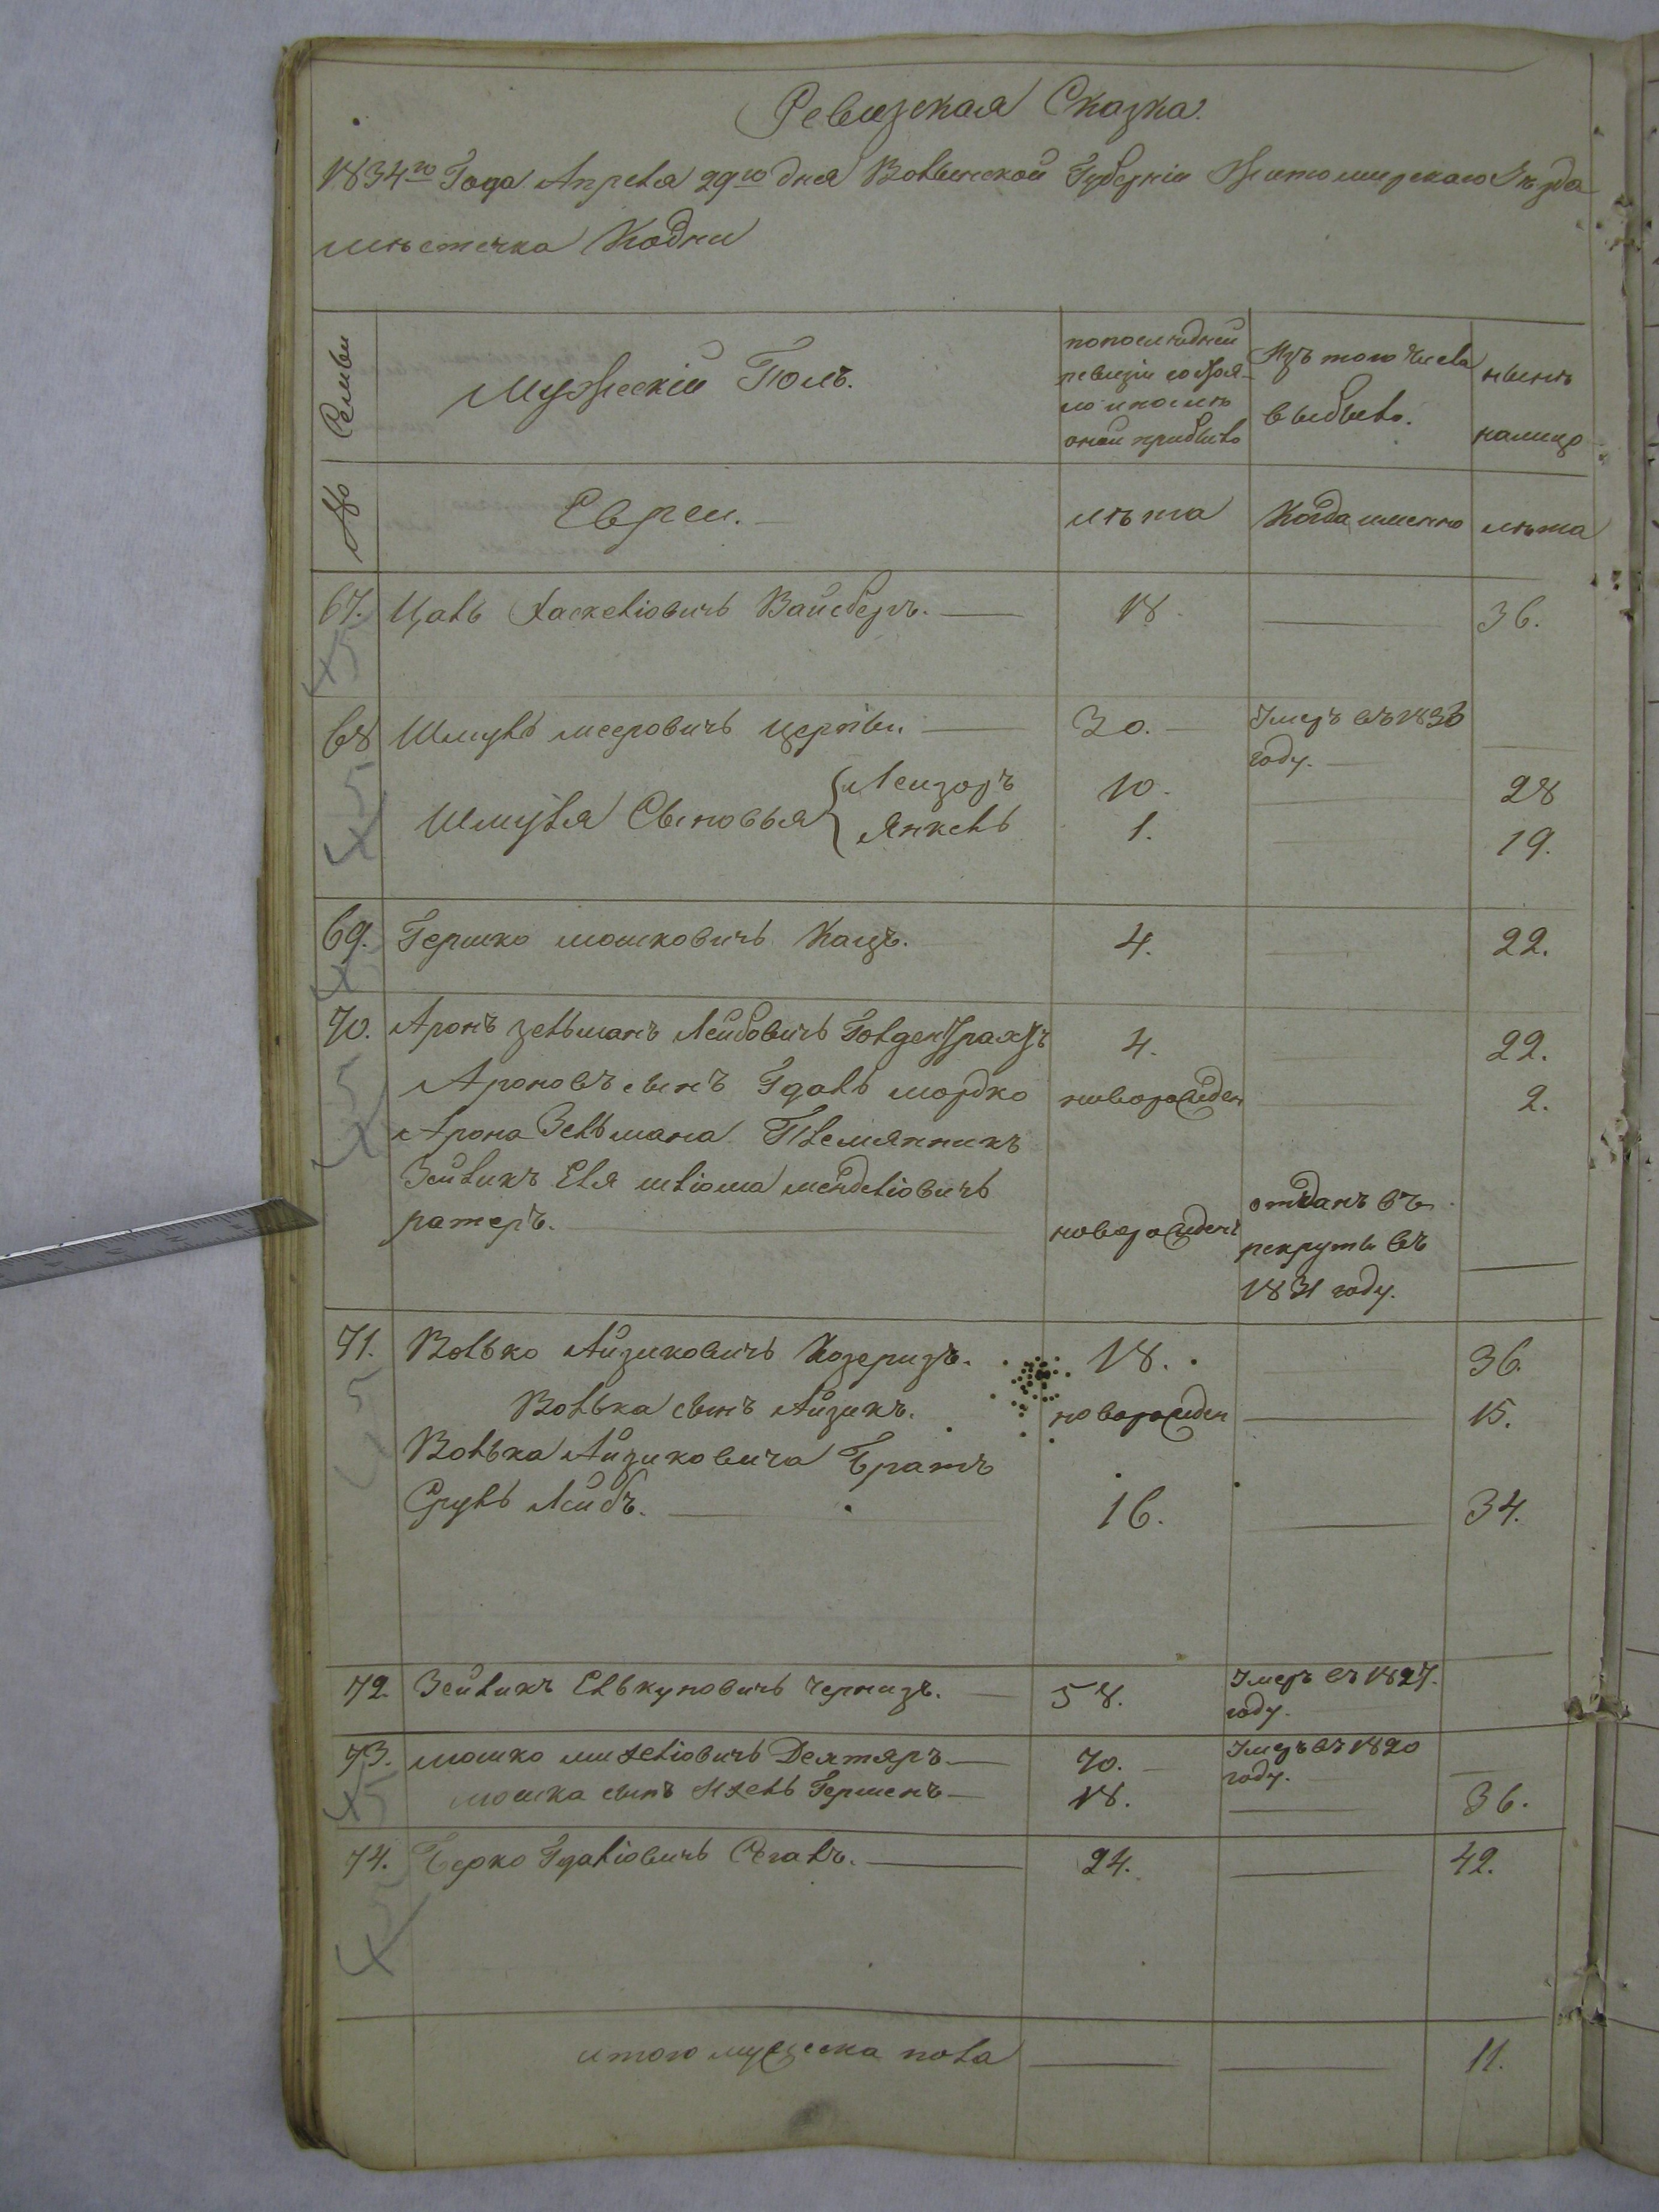 Ревизская Сказка.
1834го Года Апреля 29го дня Волынской Губерніи Житомирскаго Уезда
мѣстечка Кодни
№ Семьи
Мужескій Полъ.
по последней ревизіи состоя-
ло и после оной прибыло
Изъ того числа выбыло.
нынѣ на лицо
Евреи.
лѣта
Когда именно
лѣта
67. Цаль Хаскеліовичъ Вайсберъ. 18. 36.
45
68 Шмуль мееровичъ 30. Умеръ въ 1830 году.
Шмуля Сыновья { Лейзоръ 10. 28
Янкель 1. 19.
45
69. Гершко мошковичъ Кацъ. 4. 22.
4
70. Аронъ зельманъ Лейбовичъ 4. 22.
Ароновъ сынъ Гдаль мордко новорожден 2.
Арона Зельмана Племянникъ
Зейликъ Еля шліома менделіовичъ
ратеръ. новорожденъ отданъ въ рекруты въ 1831 году.
45
71. Волько Айзиковичъ Козеризъ. 18. 36.
Волька сынъ Айзикъ. новорожден 15.
Волька Айзиковича Братъ
Сруль Лейбъ. 16. 34.
45
72. Зейликъ Елькуновичъ Чернизъ. 58. Умеръ въ 1827. году.
73. мошко михеліовичъ Дехтяръ 70. Умеръ въ 1820 году.
мошка сынъ Ихель Гершенъ 18. 36.
45
74. Берко Гдаліовичъ Сегалъ. 24. 42.
45
итого мужеска пола 11.